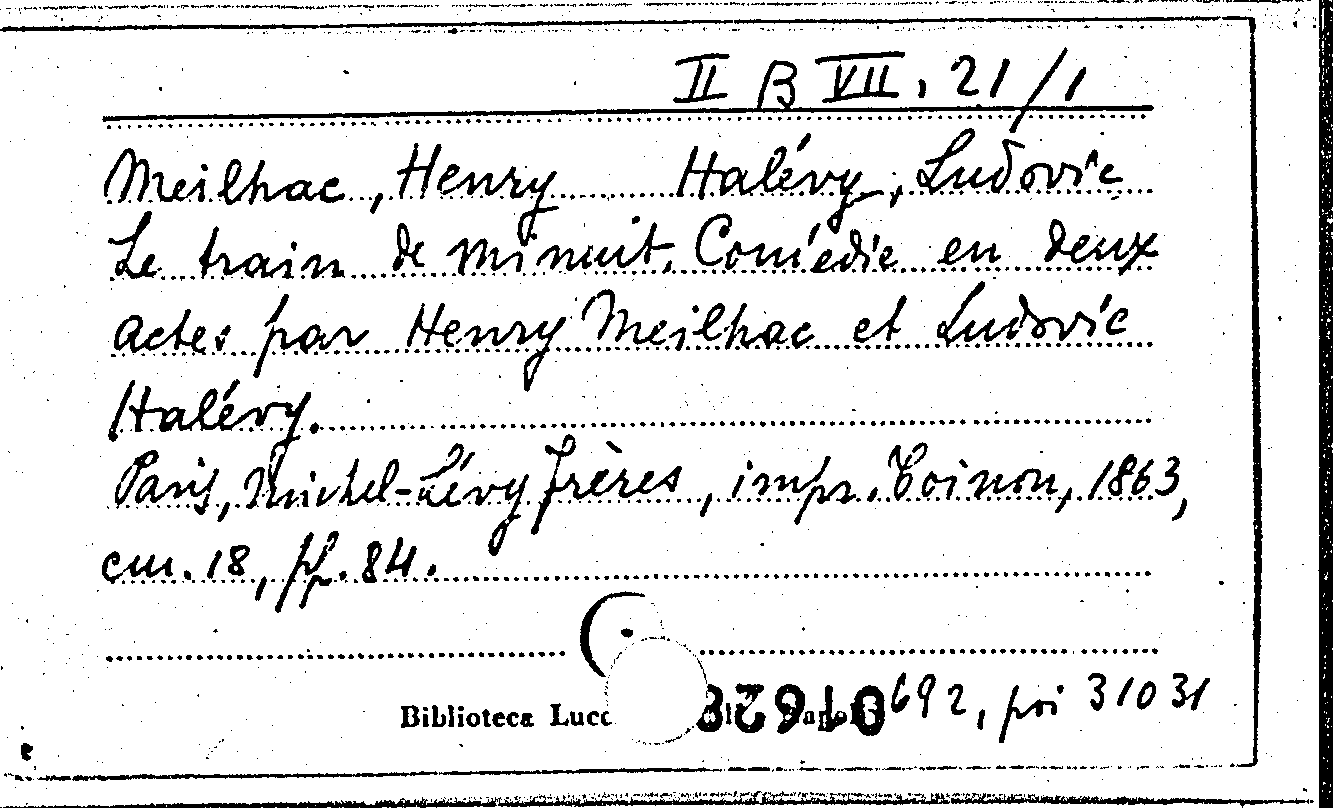 II B VII, 21/1
Meilhac, Henry Halévy, Ludovic
Le train de minuit. Comédie en deux
actes par Henry Meilhac et Ludovic
Halévy.
Paris, Michel-Lévy frères, impr. Toinon, 1863,
cm. 18, pp. 84.
Biblioteca Lucc 692, poi 31031